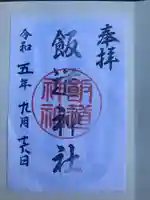 奉拝
飯道神社
令和五年九月十六日